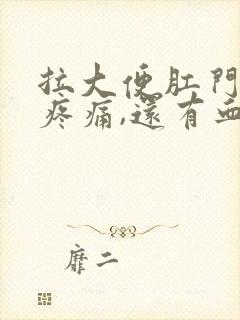 拉大便肛門
疼痛,還有血
靡二